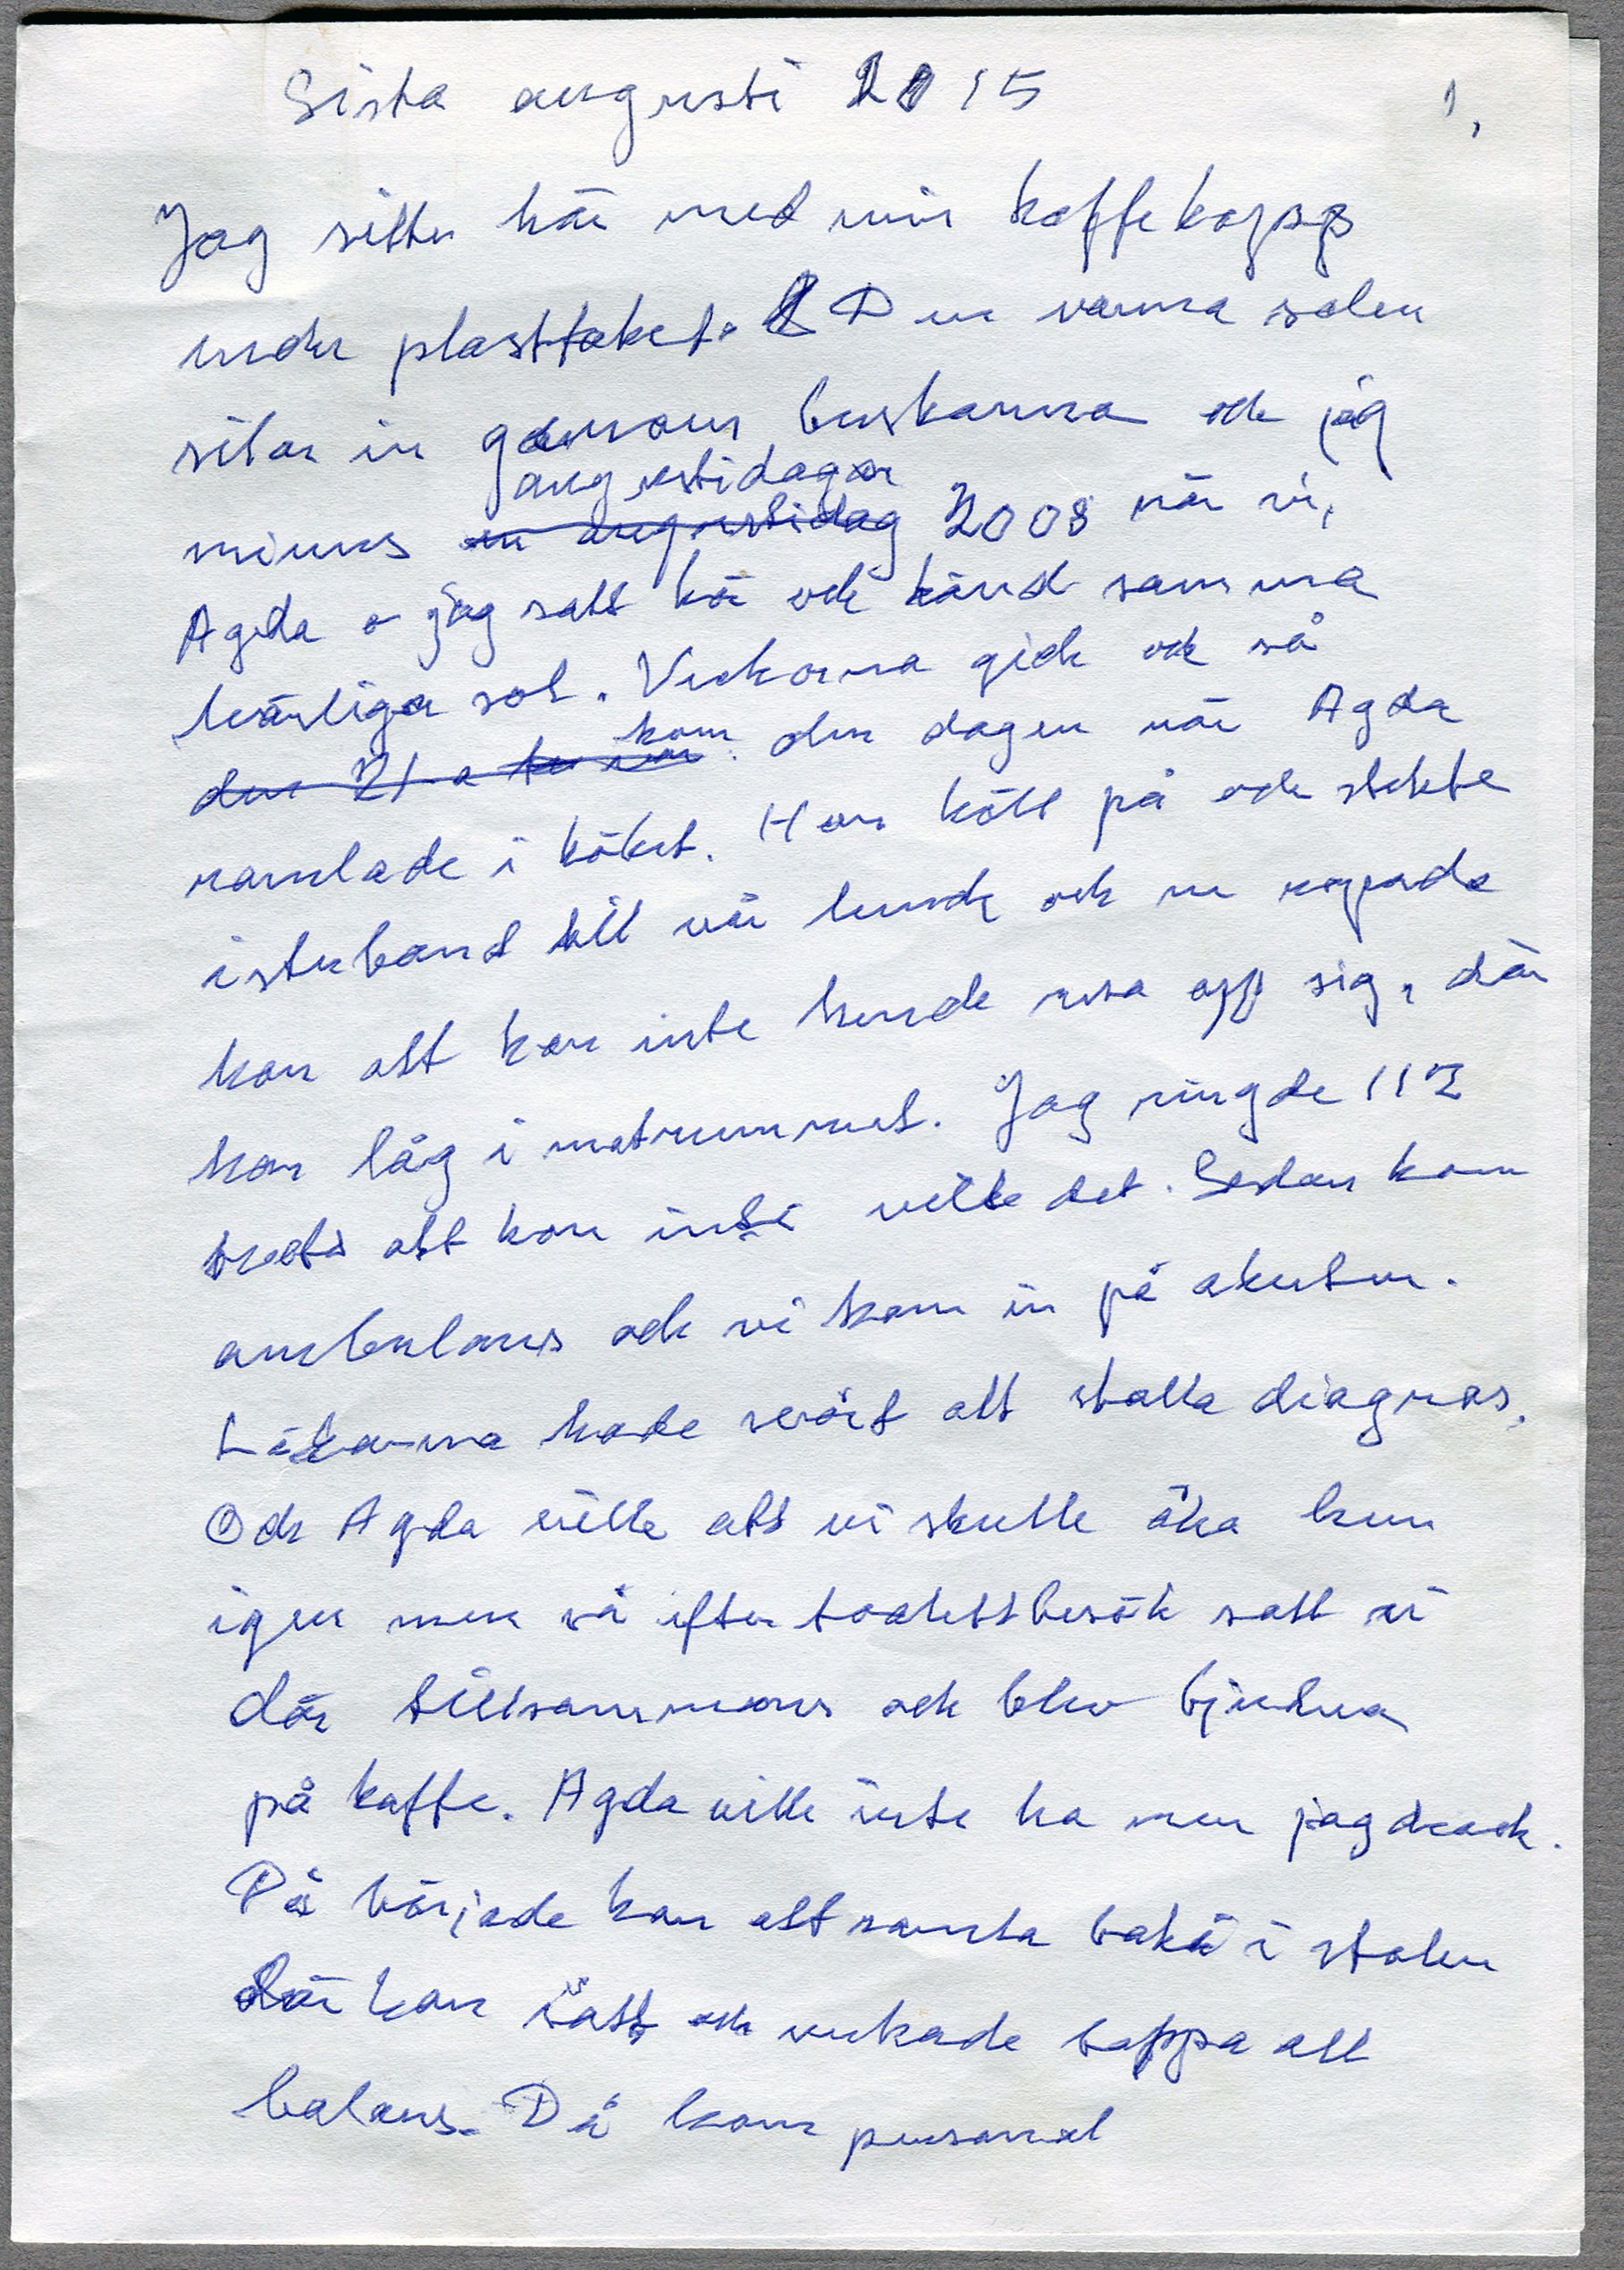 Sista augusti 2015
1,
Jag sitter här med min kaffekopp
under plasttaket. Den varma solen
silar in genom buskarna och jag
augustidagar
minns en augustidag 2008 när vi,
Agda o jag satt här och känd samma
härliga sol. Veckorna gick och så
kom
den 21-a den dagen när Agda
ramlade i köket. Hon höll på och stekte
isterband till vår lunch och nu ropade
hon att hon inte kunde resa opp sig, där
hon låg i matrummet. Jag ringde 112
trots att hon inte ville det. Sedan kom
ambulans och vi kom in på akuten.
Läkarna hade svårt att ställa diagnos.
Och Agda ville att vi skulle åka hem
igen men så efter toalettbesök satt vi
där tillsammans och blev bjudna
på kaffe. Agda ville inte ha men jag drack.
Då började hon att ramla bakå i stolen
där hon satt och verkade tappa all
balans. Då kom personal